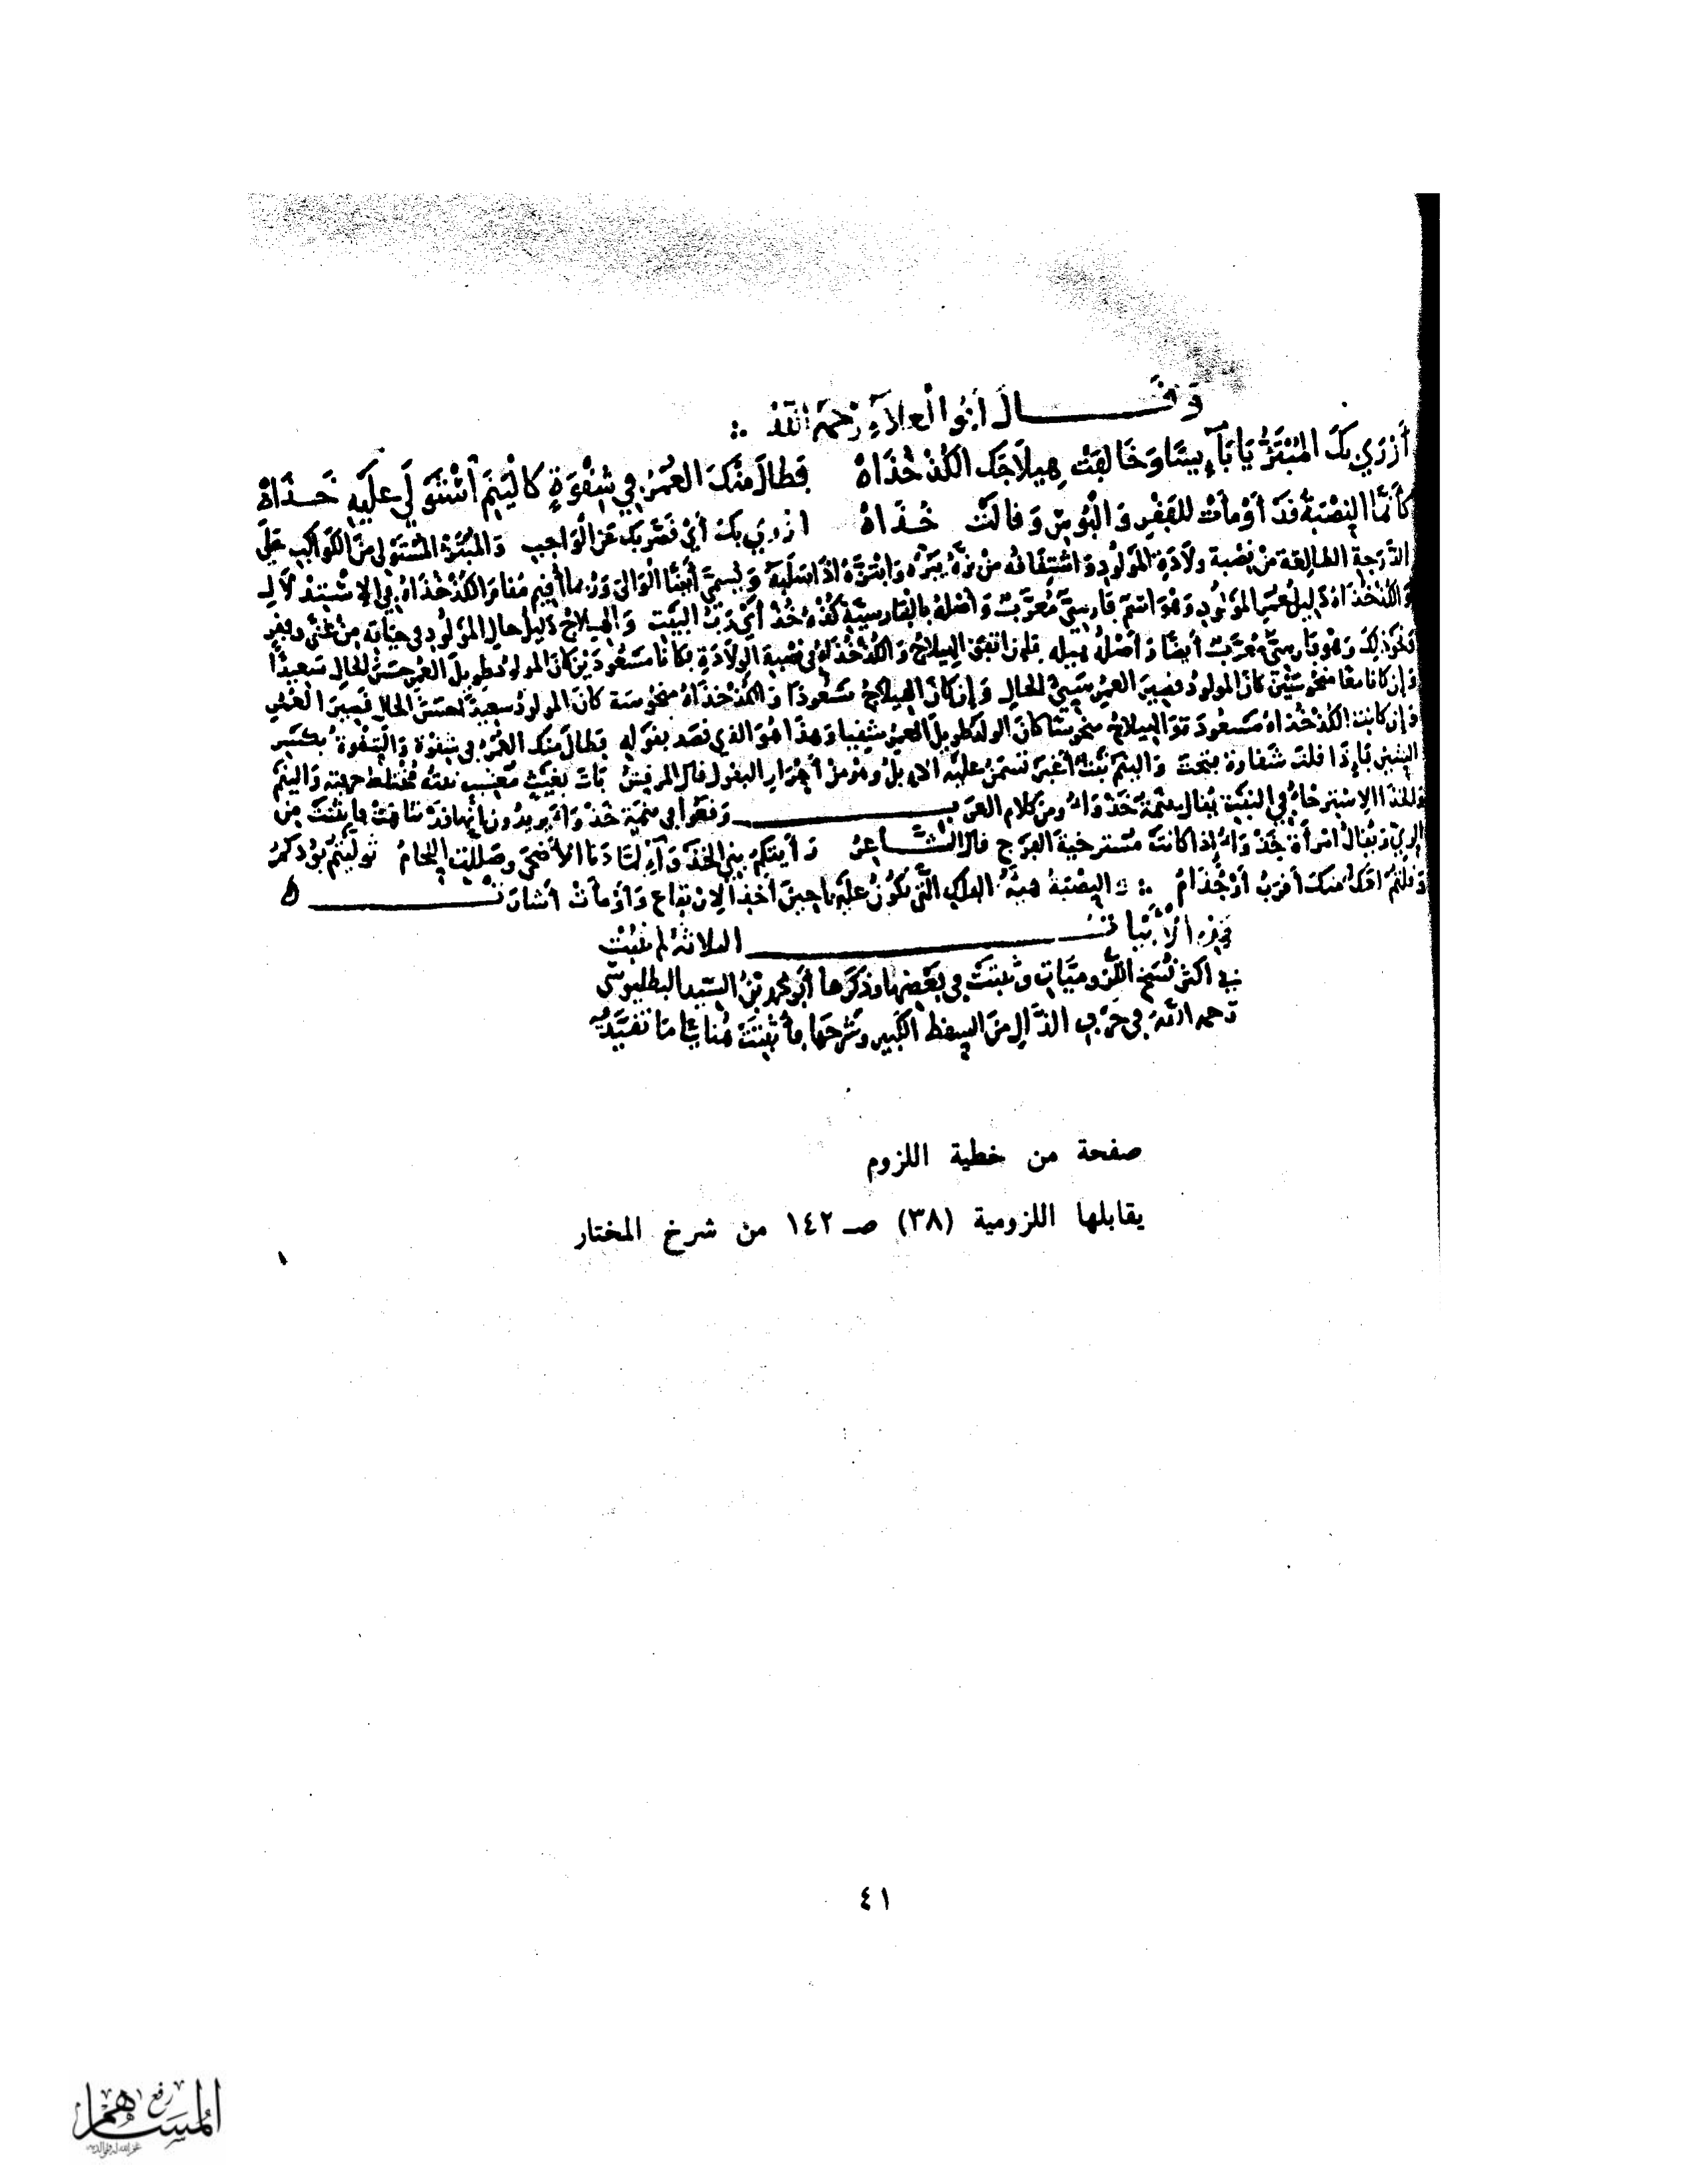 وقال أبو العلاء رحمه الله
أزرى بك المبتز يا بائسا وخالفت هيلاجك الكذخذاه فطال منك العمر في شقوة كالينم استولى عليه خذاه
كأنما النصبة قد أومأت للفقر والبؤس وقالت خذاه أزرى بك أي قصر بك عن الواجب والمبتز المستولي من الكواكب على
الدرجة الطالعة من نصبة ولادة المولود واشتقاقه من بزه يبزه وابتزه إذا سلبه ويسمى أيضا الوالي وربما أقيم مقام الكذخذاه في الاستد لال
والكذخذاه دليل عمر المولود وهو اسم فارسي معرب وأصله بالفارسية كذه خذ أي رب البيت والهيلاج دليل حال المولود في حياته من غنى وفقر
ونحو ذلك وهو فارسي معرب أيضا وأصله فإن اتفق الهيلاج والكذخذاه في نصبة الولادة فكانا مسعودين كان المولود طويل العمر حسن الحال سعيدا
وإن كانا معا منحوسين كان المولود قصير العمر سيئ الحال وإن كان الهيلاج مسعودا والكذخذاه منحوسة كان المولود سعيدا حسن الحال قصير العمر
وإن كانت الكذخذاه مسعودة والهيلاج منحوسا كان الولد طويل العمر شقيا وهذا هو الذي قصد بقوله فطال منك العمر في شقوة والشقوة بكسر
الشين فإذا قلت شقاوة فتحت والينم نبت أغبر تسمن عليه الإبل وهو من أحرار البقول قال المرقش بات بغيث معشب نبته مختلط حربثه والينم
والخذا الاسترخاء في النبت يقال ينمة خذواء ومن كلام العرب وقعوا في ينمة خذواء يريدون أنها قد تناهت فانثنت من
الري ويقال امرأة خذواء إذا كانت مسترخية الفرج قال الشاعر رأيتكم بني الخذواء لما دنا الأضحى وصللت اللحام توليتم بودكم
وقلتم لعك منك أقرب أو جذام والنصبة هيئة الفلك التي تكون عليها حين أخذ الارتفاع وأومأت أشارت
هذه الأبيات الثلاثة لم تثبت
في أكثر نسخ اللزوميات وثبتت في بعضها وذكرها أبو محمد بن السيد البطليوسي
رحمه الله في حرف الذال من السقط الكبير وشرحها فأثبتت هنا
صفحة من خطية اللزوم
يقابلها اللزومية (٣٨) صـ ١٤٢ من شرح المختار
٤١
رفع
المساهم
غفر الله له ولوالديه